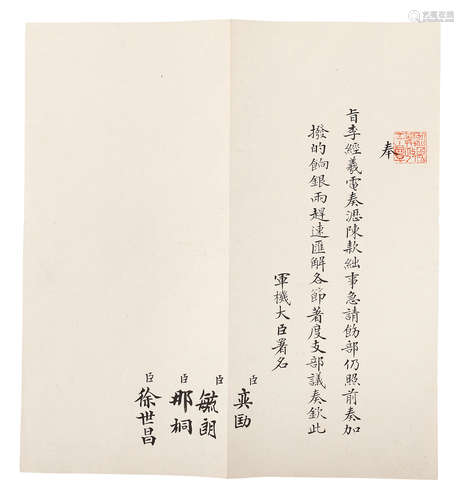 奉
旨李經羲電奏瀝陳款絀事急請飭部仍照前奏加
撥的餉銀兩趕速匯解各節著度支部議奏欽此
軍機大臣署名
臣奕劻
臣毓朗
臣那桐
臣徐世昌